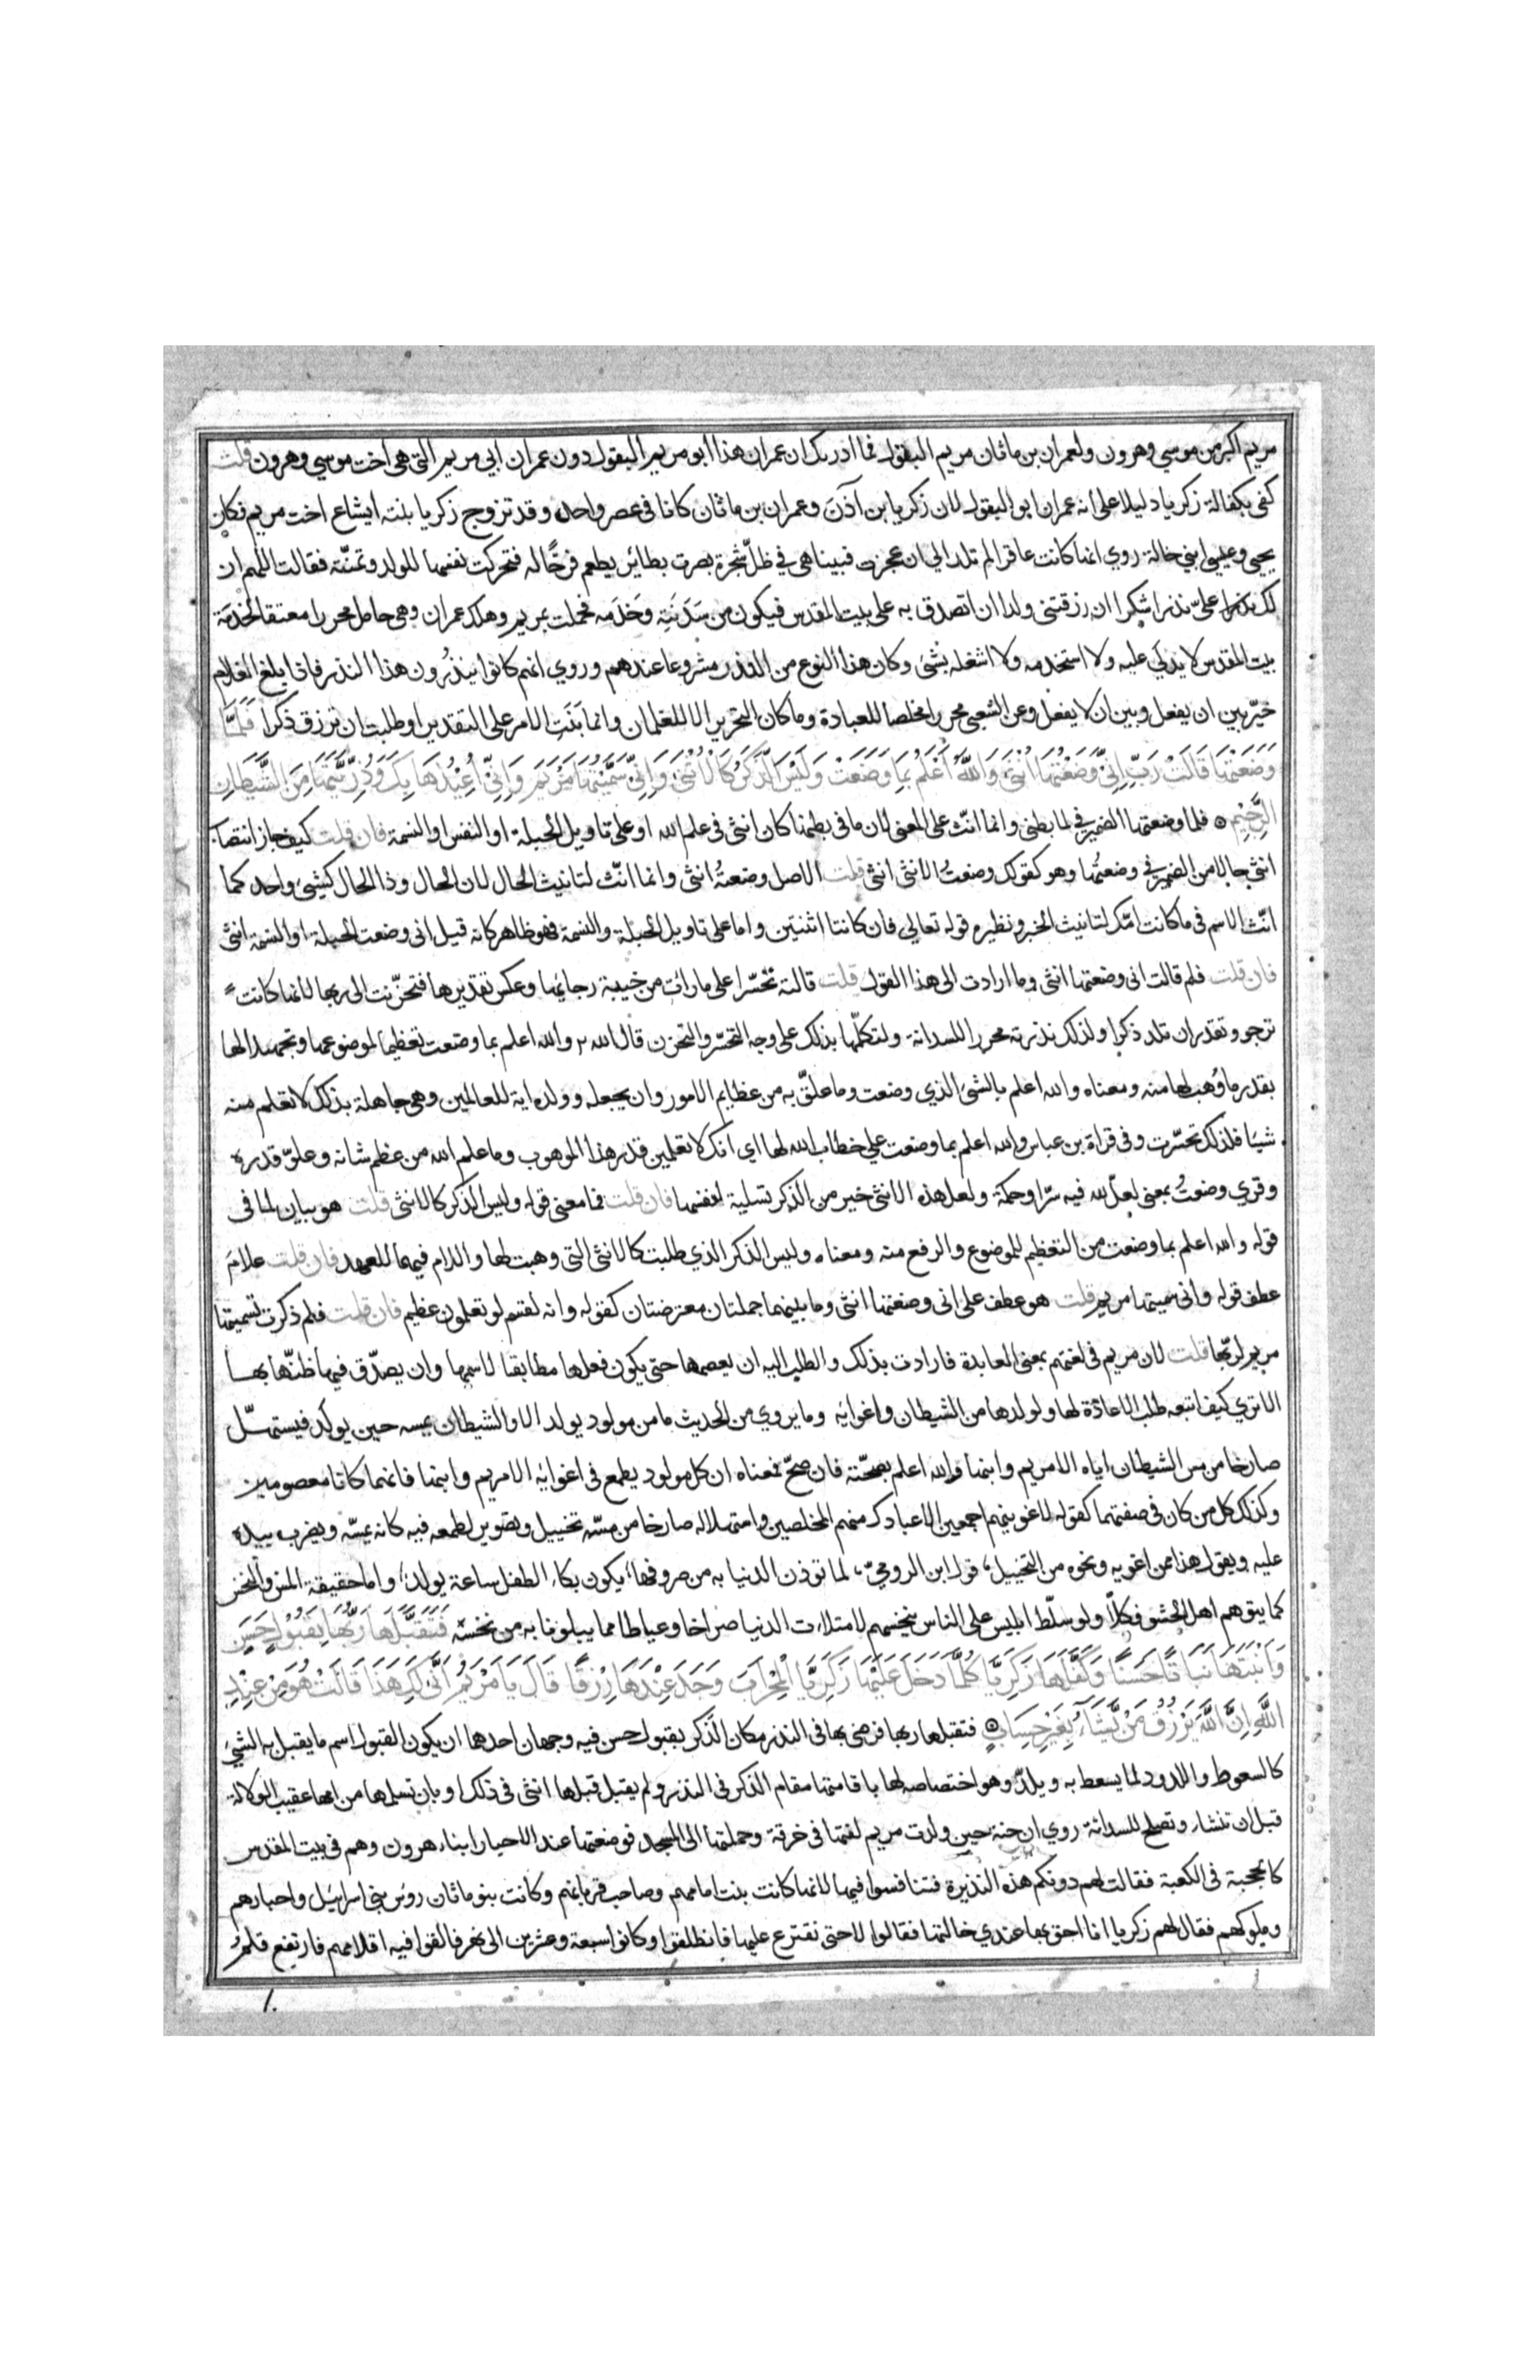 مريم اكبر من موسي وهرون ولعمران بن ماثان مريم البتول فما ادريك ان عمران هذا ابو مريم البتول دون عمران ابي مريم التي هي اخت موسي وهرون قلت
كفي بكفالة زكريا دليلا على انه عمران ابو البتول لان زكريا بن آذن وعمران بن ماثان كانا فى عصر واحد وقد تزوج زكريا بنته ايشاع اخت مريم فكان
يحيي وعيسي ابني خالة روي انها كانت عاقرا لم تلد الي ان عجزت فبينا هي في ظلّ شجرة بصرت بطائر يطعم فرخًا له فتحركت نفسها للولد وتمنّته فقالت اللهم ان
لك علىّ نذرا شكرا ان رزقتنى ولدا ان اتصدق به على بيت المقدس فيكون من سَدَنَتِه وخَدَمه فحملت بمريم وهلك عمران وهي حامل محررا معتقا لخدمة
بيت المقدس لا يد لي عليه ولا استخدمه ولا اشغله بشئ وكان هذا النوع من النذر مشروعا عندهم وروي انهم كانوا ينذُرون هذا النذر فاذا يلغ الغلام
خيّر بين ان يفعل وبين ان لا يفعل وعن الشعبى محررا مخلصا للعبادة وما كان التحرير الا للغلمان وانما بَنَتِ الامر على التقدير او طلبت ان ترزق ذكرا فَلَمَّا
وَضَعَتْهَا قَالَتْ رَبِّ اِنِّى وَضَعْتُهَا اُنْثٰى وَاللَّهُ اَعْلَمُ بِمَا وَضَعَتْ وَلَيْسَ الذَّكَرُ كَالْاُنْثٰى وَاِنِّى سَمَّيْتُهَا مَرْيَمَ وَاِنِّى اُعِيْذُهَا بِكَ وَذُرِّيَّتَهَا مِنَ الشَّيْطَانِ
الرَّجِيْمِ فلما وضعتها الضمير في لما بطنى وانما انّث على المعنى لان ما فى بطنها كان انثى فى علم الله او على تاويل الحبلة او النفس او النسمة فان قلت كيف جاز انتصاب
انثى حالا من الضمير في وضعتُها وهو كقولك وضعتُ الانثى انثى قلت الاصل وضعتهُ انثى وانما انّث لتانيث الحال لان الحال وذا الحال كشيئ واحد كما
انّث الاسم فى ما كانت امّك لتانيث الخبر ونظيره قوله تعالي فان كانتا اثنتين واما على تاويل الحبلة والنسمة فهو ظاهر كانه قيل انى وضعت الحبلة او النسمة انثى
فان قلت فلم قالت انى وضعتها انثى وما ارادت الى هذا القول قلت قالته تحسّرا على ما رأت من خيبة رجائها وعكس تقديرها فتحزّنت الى ربها لانها كانت
ترجو وتقدر ان تلد ذكرا ولذلك نذرته محررا للسدانة ولتكلّمها بذلك على وجه التحسّر والتحزن قال الله والله اعلم بما وضعت تعظيما لموضوعها وتجهيلا لها
بقدر ما وُهب لها منه ومعناه والله اعلم بالشئ الذي وضعت وما علّق به من عظايم الامور وان يجعله وولده اية للعالمين وهي جاهلة بذلك لا تعلم منه
شيئا فلذلك تحسّرت وفى قراة بن عباس والله اعلم بما وضعتِ علي خطاب الله لها اي انك لا تعلمين قدر هذا الموهوب وما علم الله من عظم شانه وعلوّ قدره
وقري وضعتُ بمعنى لعلّ لله فيه سرّا وحكمة ولعل هذه الانثى خير من الذكر تسلية لنفسها فان قلت فما معنى قوله وليس الذكر كالانثى قلت هو بيان لما فى
قوله والله اعلم بما وضعت من التعظيم للموضوع والرفع منه ومعناه وليس الذكر الذي طلبت كالانثى التى وهبت لها واللام فيهما للعهد فان قلت علامَ
عطف قوله وانى سميتها مريم قلت هو عطف على انى وضعتها انثى وما بينهما جملتان معترضتان كقوله وانه لقسم لو تعلمون عظيم فان قلت فلم ذكرت تسميتها
مريم لربّها قلت لان مريم فى لغتهم بمعنى العابدة فارادت بذلك والطلب اليه ان يعصمها حتى يكون فعلها مطابقا لاسمها وان يصدّق فيها ظنّها بها
الا تري كيف اتبعه طلب الاعاذة لها ولولدها من الشيطان واغوائه وما يروي من الحديث ما من مولود يولد الا والشيطان يمسه حين يولد فيستهلّ
صارخا من مس الشيطان اياه الا مريم وابنها والله اعلم بصحّته فان صحّ فمعناه ان كل مولود يطمع فى اغوائه الا مريم وابنها فانهما كانا معصومين
وكذلك كل من كان فى صفتهما كقوله لاغوينهم اجمعين الا عبادك منهم المخلصين واستهلاله صارخا من مسّه تخييل وتصوير لطمعه فيه كانه يمسّه ويضرب بيده
عليه ويقول هذا ممن اغويه ونحوه من التخييل قول ابن الروميّ لما توذن الدنيا به من صروفها يكون بكاء الطفل ساعة يولد واما حقيقة المس والنخس
كما يتوهم اهل الحشو فكلّا ولو سلّط ابليس على الناس ينخسهم لامتلاءت الدنيا صراخا وعياطا مما يبلونا به من نخسه فَتَقَبَّلَهَا رَبُّهَا بِقَبُوْلٍ حَسَنٍ
وَاَنْبَتَهَا نَبَاتًا حَسَنًا وَكَفَّلَهَا زَكَرِيَّا كُلَّمَا دَخَلَ عَلَيْهَا زَكَرِيَّا الْمِحْرَابَ وَجَدَ عِنْدَهَا رِزْقًا قَالَ يَا مَرْيَمُ اَنّٰى لَكِ هَذَا قَالَتْ هُوَ مِنْ عِنْدِ
اللَّهِ اِنَّ اللَّهَ يَرْزُقُ مَنْ يَّشَآءُ بِغَيْرِ حِسَابٍ فتقبلها ربها فرضى بها فى النذر مكان الذكر بقبول حسن فيه وجهان احدها ان يكون القبول اسم ما يقبل به الشئ
كالسعوط واللدود لما يسعط به ويلدّ وهو اختصاصه لها باقامتها مقام الذكر فى النذر ولم يقبل قبلها انثى فى ذلك او بان تسلمها من امها عقيب الولادة
قبل ان تنشاء وتصلح للسدانة روي ان حنة حين ولدت مريم لفتها فى خرقة وحملتها الى المسجد فوضعتها عند الاحبار ابناء هرون وهم فى بيت المقدس
كالحجبة فى الكعبة فقالت لهم دونكم هذه النذيرة فتنافسوا فيها لانها كانت بنت امامهم وصاحب قربانهم وكانت بنو ماثان روس بني اسرايل واحبارهم
وملوكهم فقال لهم زكريا انا احق بها عندي خالتها فقالوا لا حتى نقترع عليها فانطلقوا وكانوا سبعة وعشرين الى نهر فالقوا فيه اقلامهم فارتفع قلم